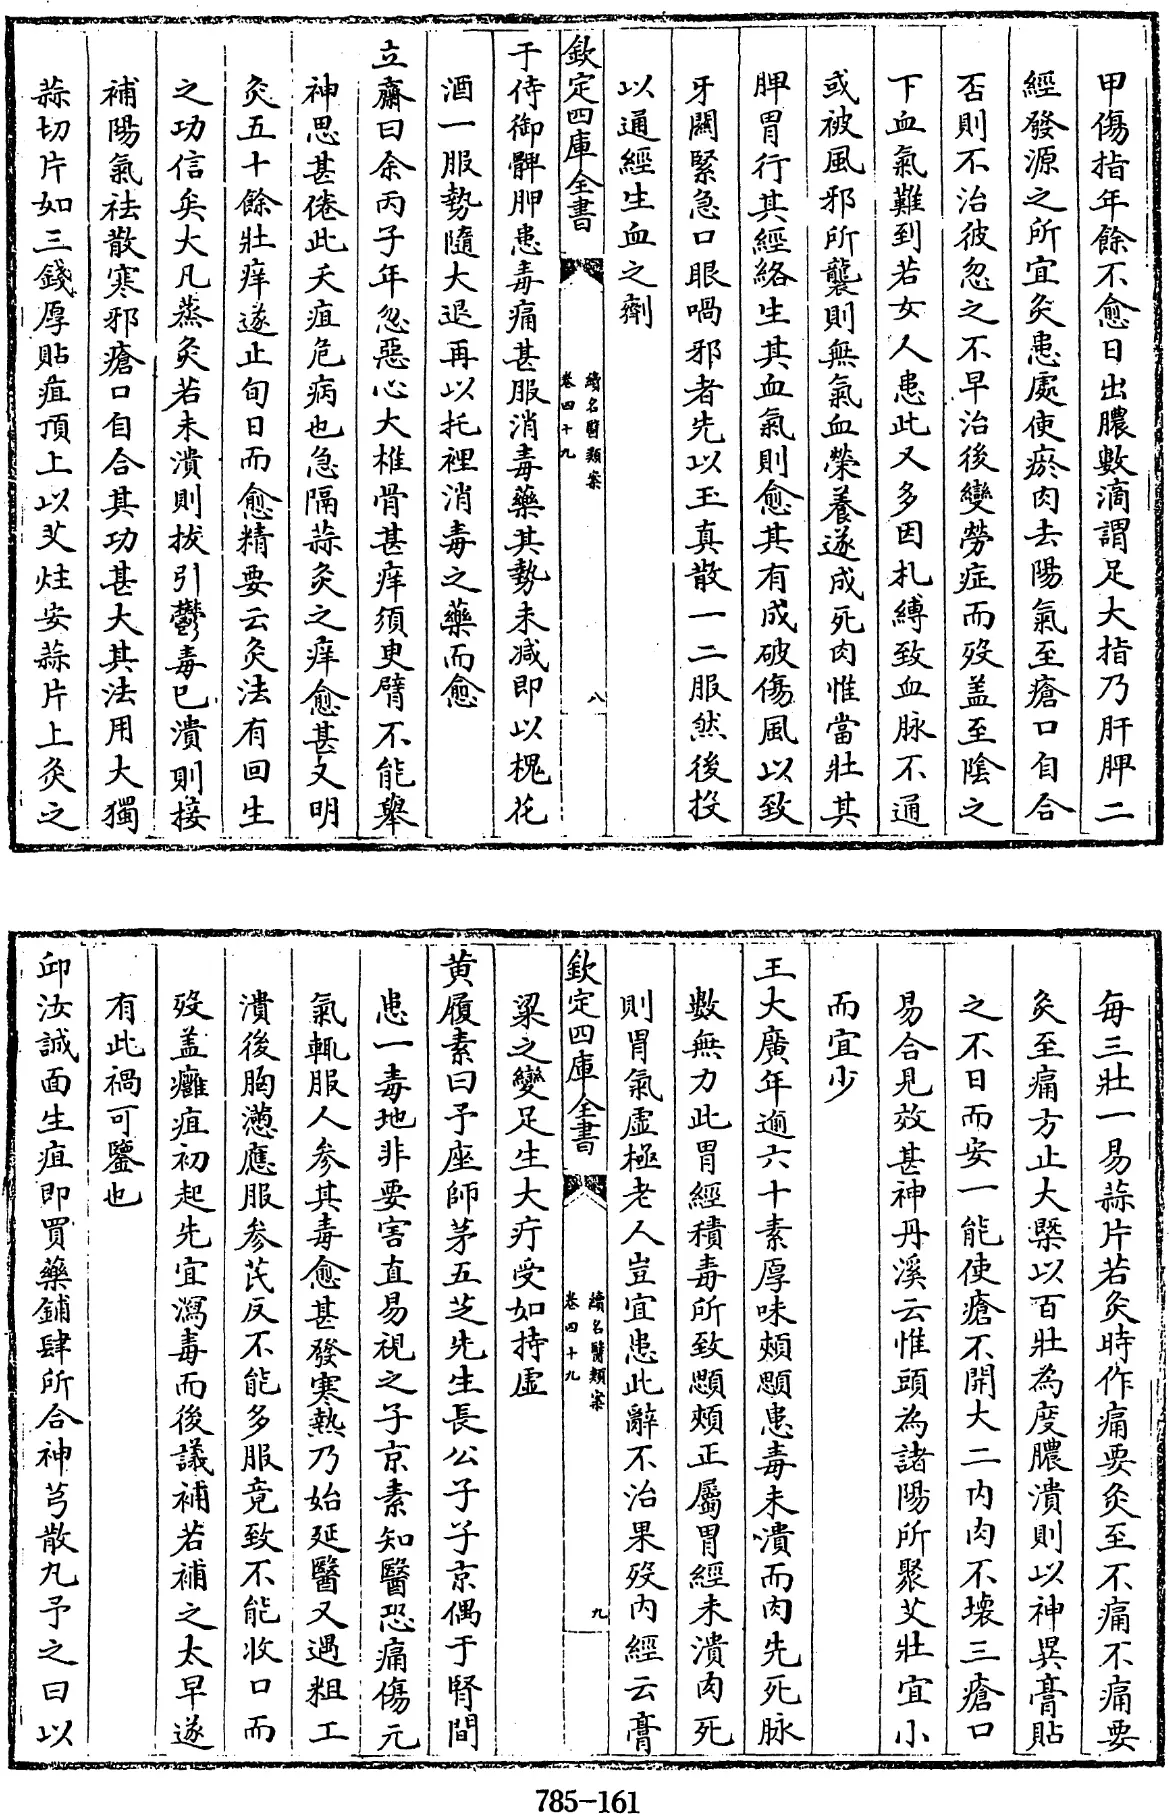 甲傷指年餘不愈日出膿數滴謂足大指乃肝脾二
經發源之所宜灸患處使瘀肉去陽氣至瘡口自合
否則不治彼忽之不早治後變勞症而歿盖至陰之
下血氣難到若女人患此又多因札縛致血脉不通
或被風邪所襲則無氣血榮養遂成死肉惟當壯其
脾胃行其經絡生其血氣則愈其有成破傷風以致
牙關緊急口眼喎邪者先以玉真散一二服然後投
以通經生血之劑
欽定四庫全書
續名醫類案
卷四十九
八
于侍御髀胛患毒痛甚服消毒藥其勢未减即以槐花
酒一服勢隨大退再以托裡消毒之藥而愈
立齋曰余丙子年忽惡心大椎骨甚痒須臾臂不能舉
神思甚倦此夭疽危病也急隔蒜灸之痒愈甚又明
灸五十餘壯痒遂止旬日而愈精要云灸法有回生
之功信矣大凡蒸灸若未潰則拔引鬱毒已潰則接
補陽氣祛散寒邪瘡口自合其功甚大其法用大獨
蒜切片如三錢厚貼疽頂上以艾炷安蒜片上灸之
每三壯一易蒜片若灸時作痛要灸至不痛不痛要
灸至痛方止大槩以百壯為度膿潰則以神異膏貼
之不日而安一能使瘡不開大二内肉不壊三瘡口
易合見效甚神丹溪云惟頭為諸陽所聚艾壯宜小
而宜少
王大廣年逾六十素厚味頰顋患毒未潰而肉先死脉
數無力此胃經積毒所致顋頰正屬胃經未潰肉死
則胃氣虛極老人豈宜患此辭不治果歿内經云膏
欽定四庫全書
續名醫類案
卷四十九
九
粱之變足生大疔受如持虛
黄履素曰予座師茅五芝先生長公子子京偶于腎間
患一毒地非要害直易視之子京素知醫恐痛傷元
氣輒服人参其毒愈甚發寒熱乃始延醫又遇粗工
潰後胸懣應服参芪反不能多服竟致不能收口而
歿盖癰疽初起先宜瀉毒而後議補若補之太早遂
有此禍可鑒也
邱汝誠面生疽即買藥鋪肆所合神芎散丸予之曰以
785-161